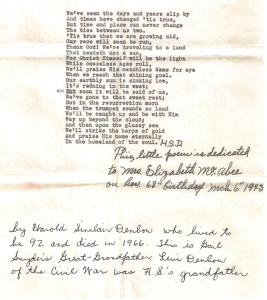 We've seen the days and years slip by
And times have changed 'tis true,
But time and place can never change
The ties between us two.
'Tis true that we are growing old,
Our race will soon be run,
Thank God! We're traveling to a land
That needeth not a sun,
For Christ Himself will be the light
While ceaseless ages roll,
We'll praise His matchless Name for aye
When we reach that shining goal.
Our earthly sun is sinking low,
It's redning in the west;
But soon it will be said of us,
He's gone to that sweet rest;
But in the resurrection morn
When the trumpet sounds so loud
We'll be caught up and be with Him
Way up beyond the cloud;
And then upon the glassy sea
We'll strike the harps of gold
And praise His name eternally
In the homeland of the soul. H.S.D
This little poem is dedicated
to Mrs Elizabeth McAbee
on her 68th birthday Mch 6th 1943
by Harold Sinclair Denlow who lived to
be 92 and died in 1966. This is Gail
Snyder's Great-Grandfather Levi Denlow
of the Civil War was H.S's grandfather